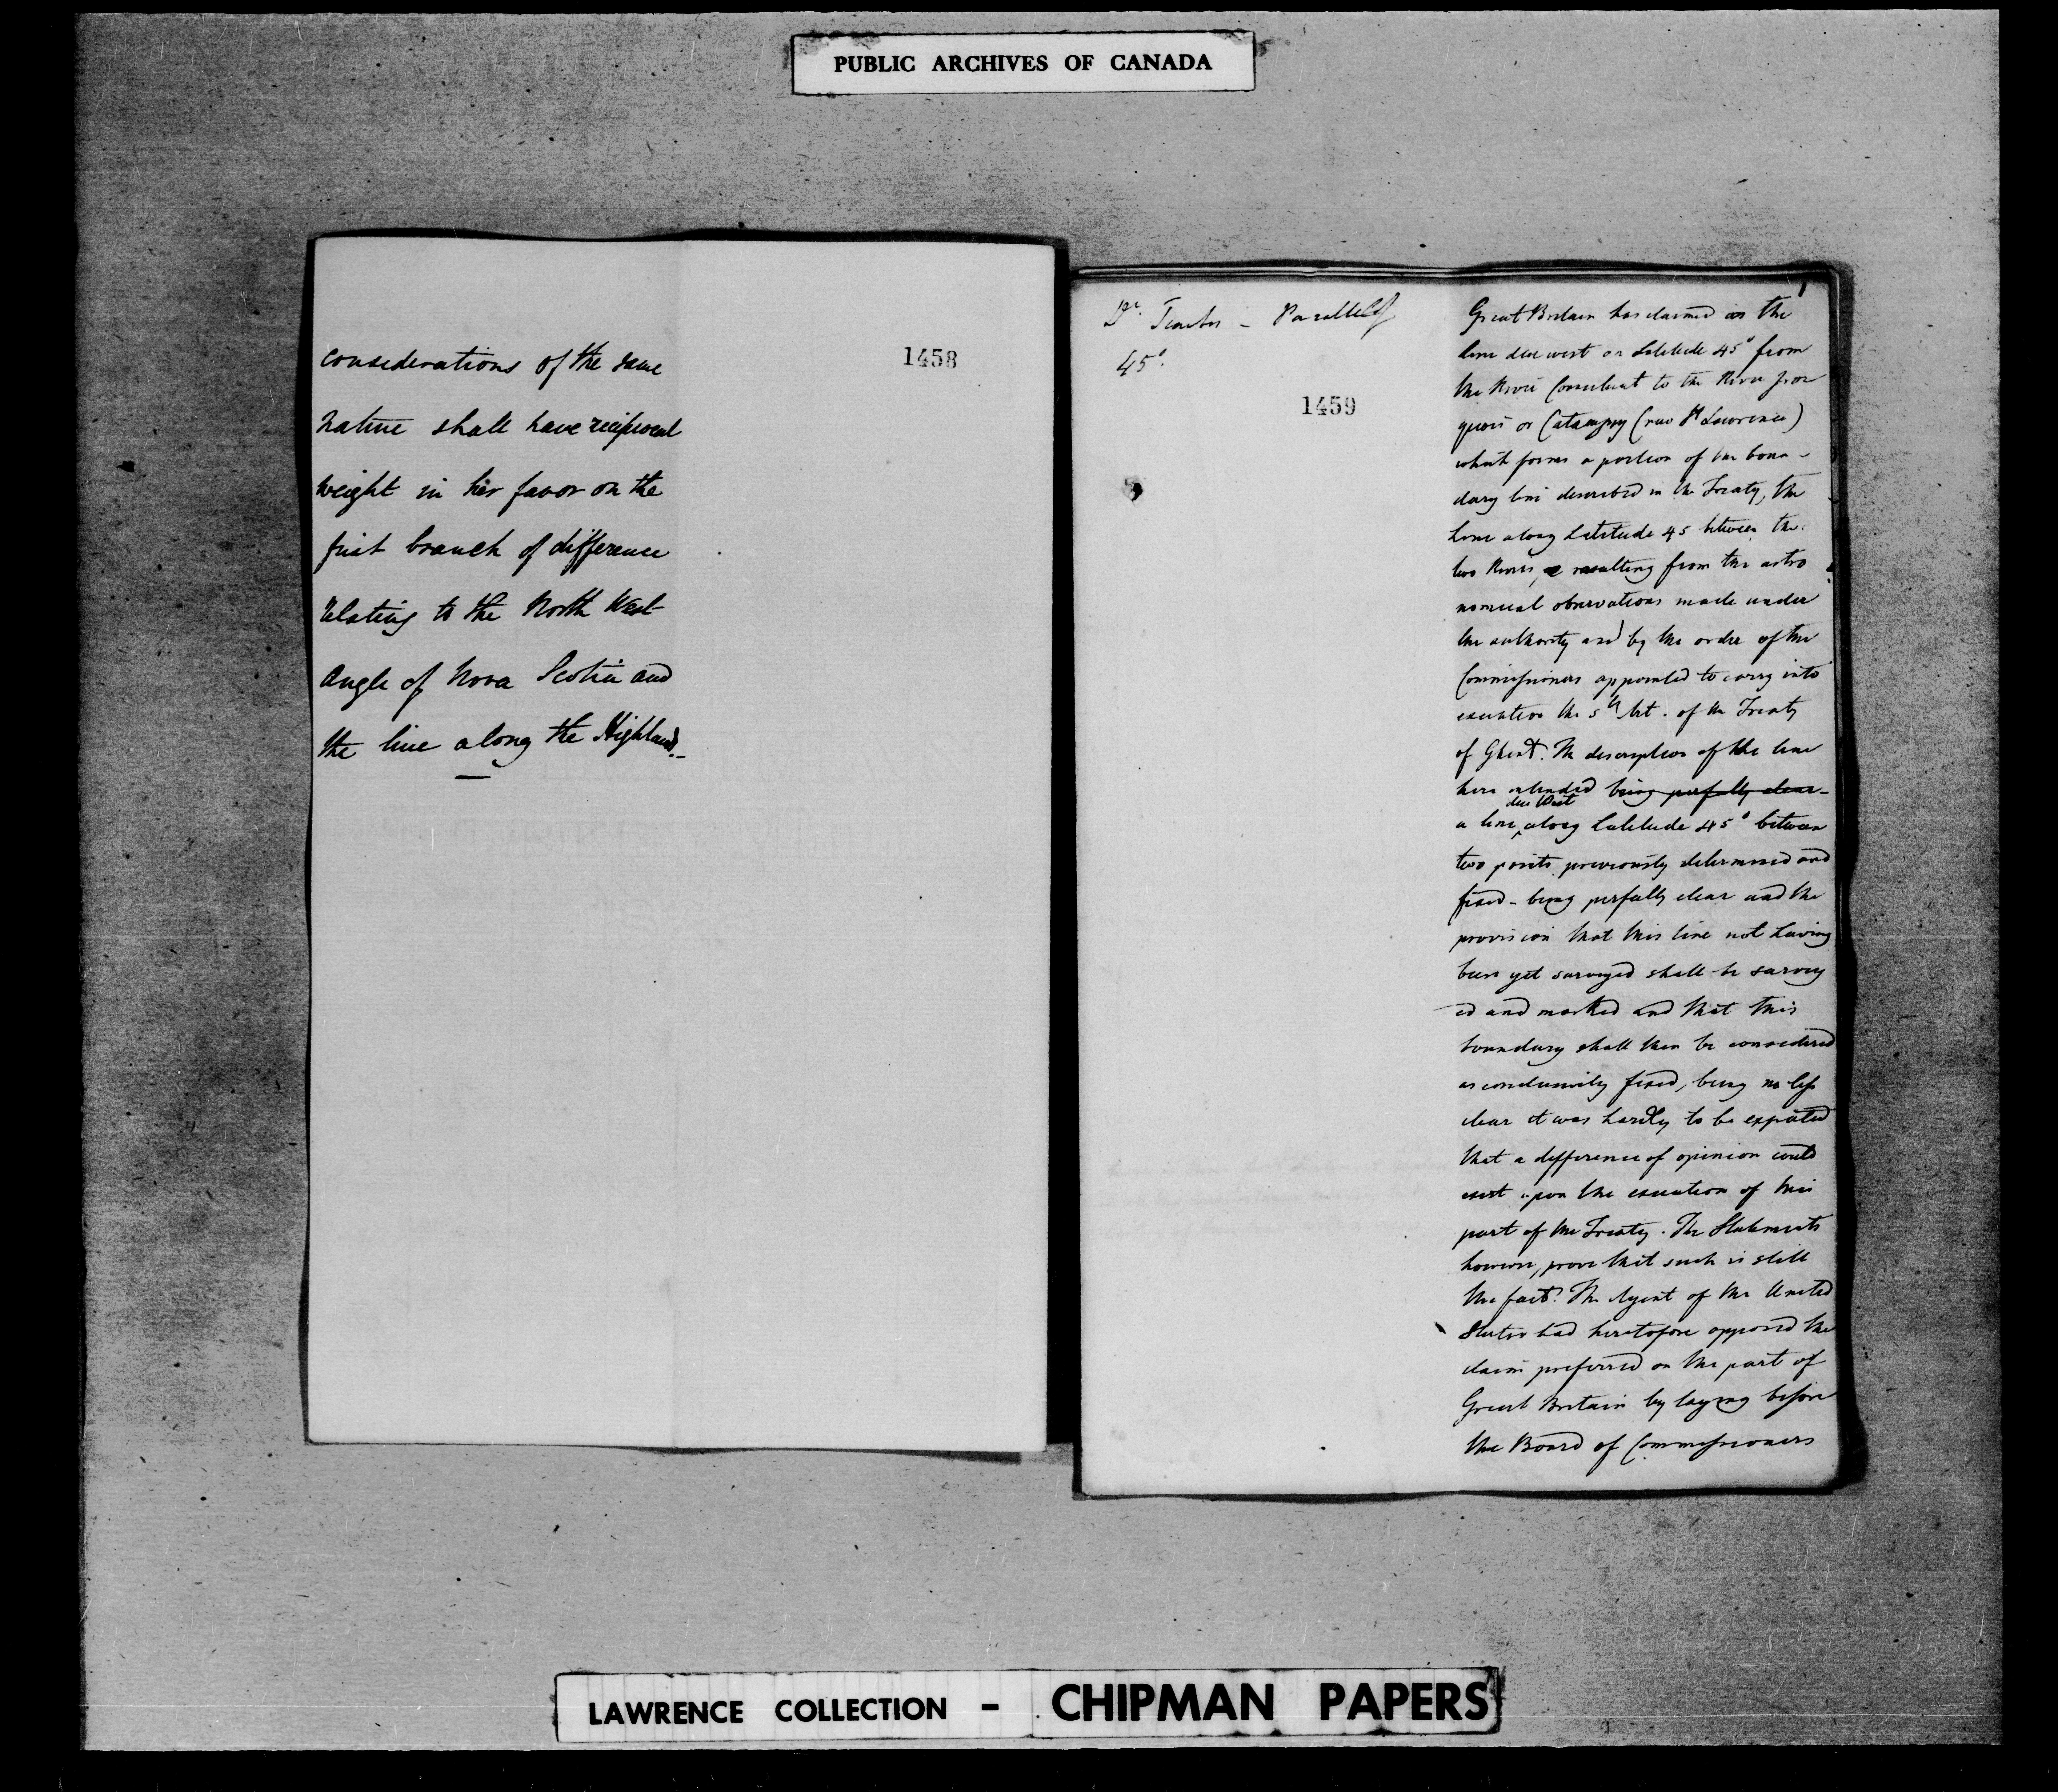 PUBLIC ARCHIVES OF CANADA
1458
considerations of the same
nature shall have reciprocal
weight in her favor on the
first branch of difference
relating to the North West
Angle of Nova Scotia and
the line along the Highlands.-
1
Dr. - Parallel of
45°.
1459
Great Britain has claimed as the
line due west on Latitude 45° from
the River Connecticut to the River Iroe
quois or Cataraquy (now St Lawrence)
which forms a portion of the boun-
dary line described in the Treaty, the
Line along Latitude 45 between the
two Rivers, resulting from the astro
nomical observations made under
the authority and by the order of the
Commissioners appointed to carry into
execution the 5th Art. of the Treaty
of Ghent. The description of the line
here intended being perfectly clear-
due West
a line along Latitude 45° between
two points previously determined and
fixed - being perfectly clear and the
provision that this line not having
been yet surveyed shall be survey
-ed and marked and that this
boundary shall then be considered
as conclusively fixed, being no less
clear it was hardly to be expected
that a difference of opinion could
exist upon the execution of this
part of the Treaty. The Statements
however, prove that such is still
the fact. The Agent of the United
States had heretofore opposed the
claim preferred on the part of
Great Britain by laying before
the Board of Commissioners
LAWRENCE COLLECTION - CHIPMAN PAPERS